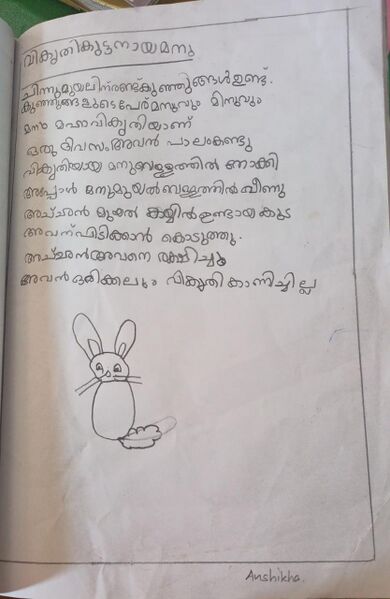 വികൃതികുട്ടനായമനു
ചിന്നുമുയലിന്രണ്ട്കുഞ്ഞുങ്ങൾഉണ്ട്.
കുഞ്ഞുങ്ങളുടെപേര്മനുവും മിനുവും
മനു മഹാവികൃതിയാണ്
ഒരു ദിവസംഅവൻ പാലംകണ്ടു
വികൃതിയായ മനുബള്ളത്തിൽ നോക്കി
അപ്പോൾ മനുമുയൽബള്ളത്തിൽവീണു
അച്ഛൻമുയൽ കയ്യിൽഉണ്ടായകുട
അവന്പിടിക്കാൻ കൊടുത്തു.
അച്ഛൻഅവനെ രക്ഷിച്ചു
അവൻഒരിക്കലും വികൃതികാണിച്ചില്ല
Anshikha.